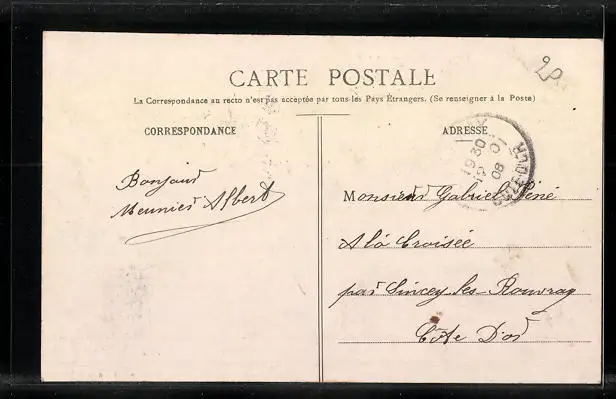 CARTE POSTALE
La Correspondance au recto n'est pas acceptée par tous les Pays Étrangers. (Se renseigner à la Poste)
CORRESPONDANCE
ADRESSE
Bonjour
Meunier Albert
Monsieur Gabriel Séné
A la Croisée
par Sincey les Rouvray
Côte D'or
19 30
19 01
08
COTE-D'OR